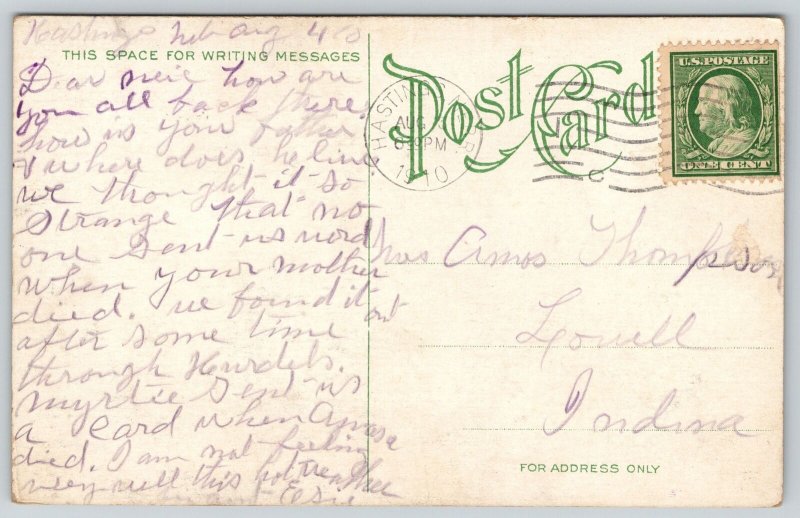 Hastings Neb Aug 4 10
THIS SPACE FOR WRITING MESSAGES
Dear neice how are
you all back there.
how is your father
& where does he live
we thought it so
strange that no
one sent us word
when your mother
died. we found it out
after some time
through Hurdels.
myrtle sent us
a Card when Amos
died. I am not feeling
very well this hot weather
Post Card
HASTINGS
AUG
PM
1910
U.S. POSTAGE
ONE CENT
Mrs Amos Thompson
Lowell
Indina
FOR ADDRESS ONLY